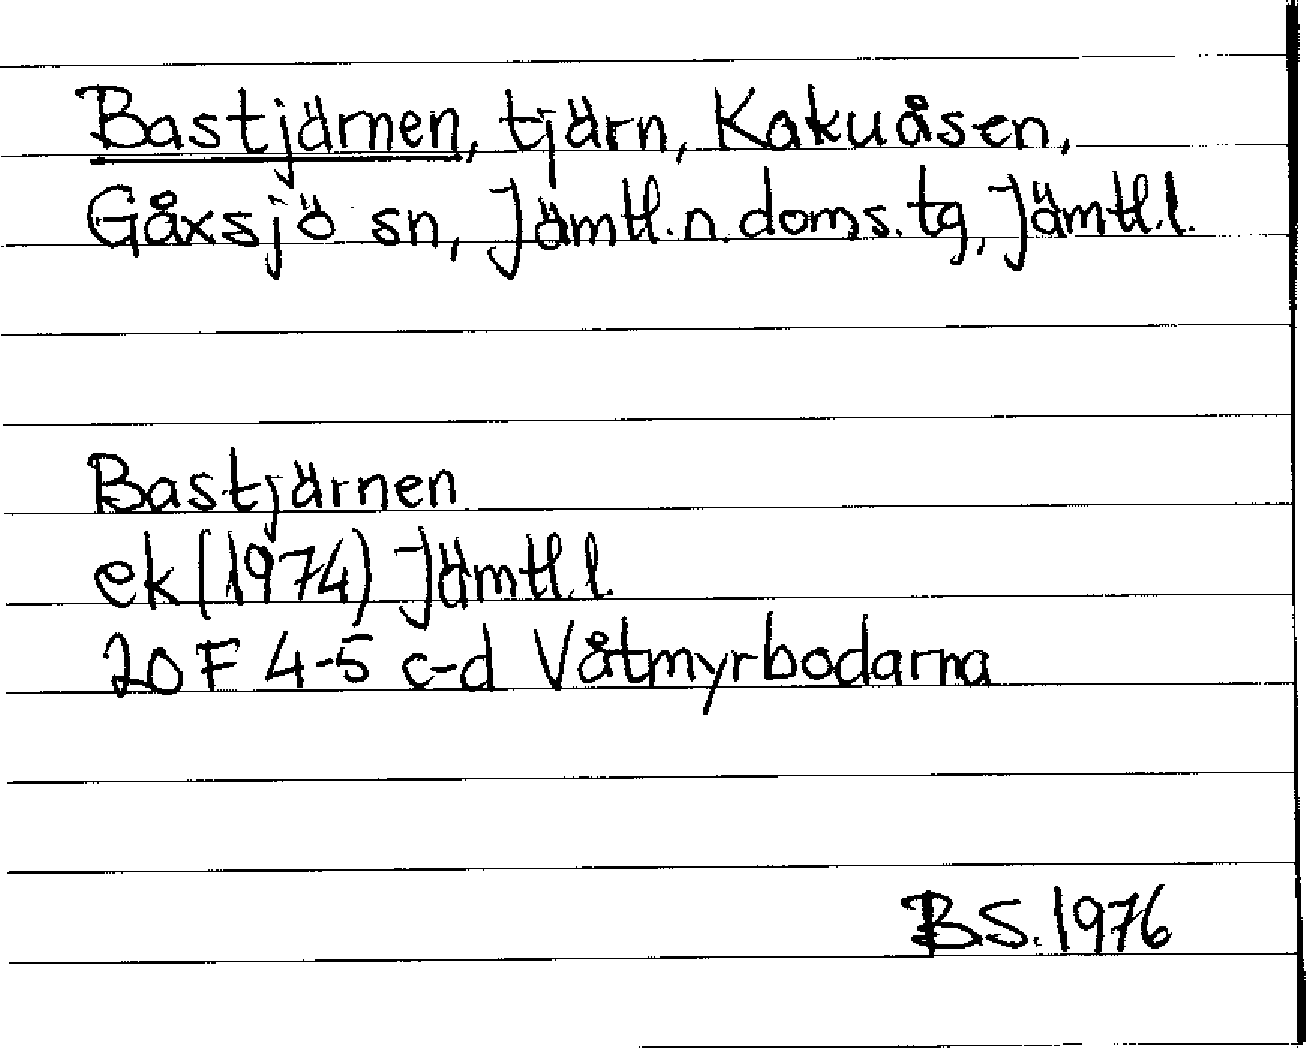 Bastjärnen, tjärn, Kakuåsen,
Gåxsjö sn, Jämtl.n.doms.tg, Jämtl.l.
Bastjärnen
ek (1974) Jämtl.l.
20 F 4-5 c-d Våtmyrbodarna
B.S. 1976